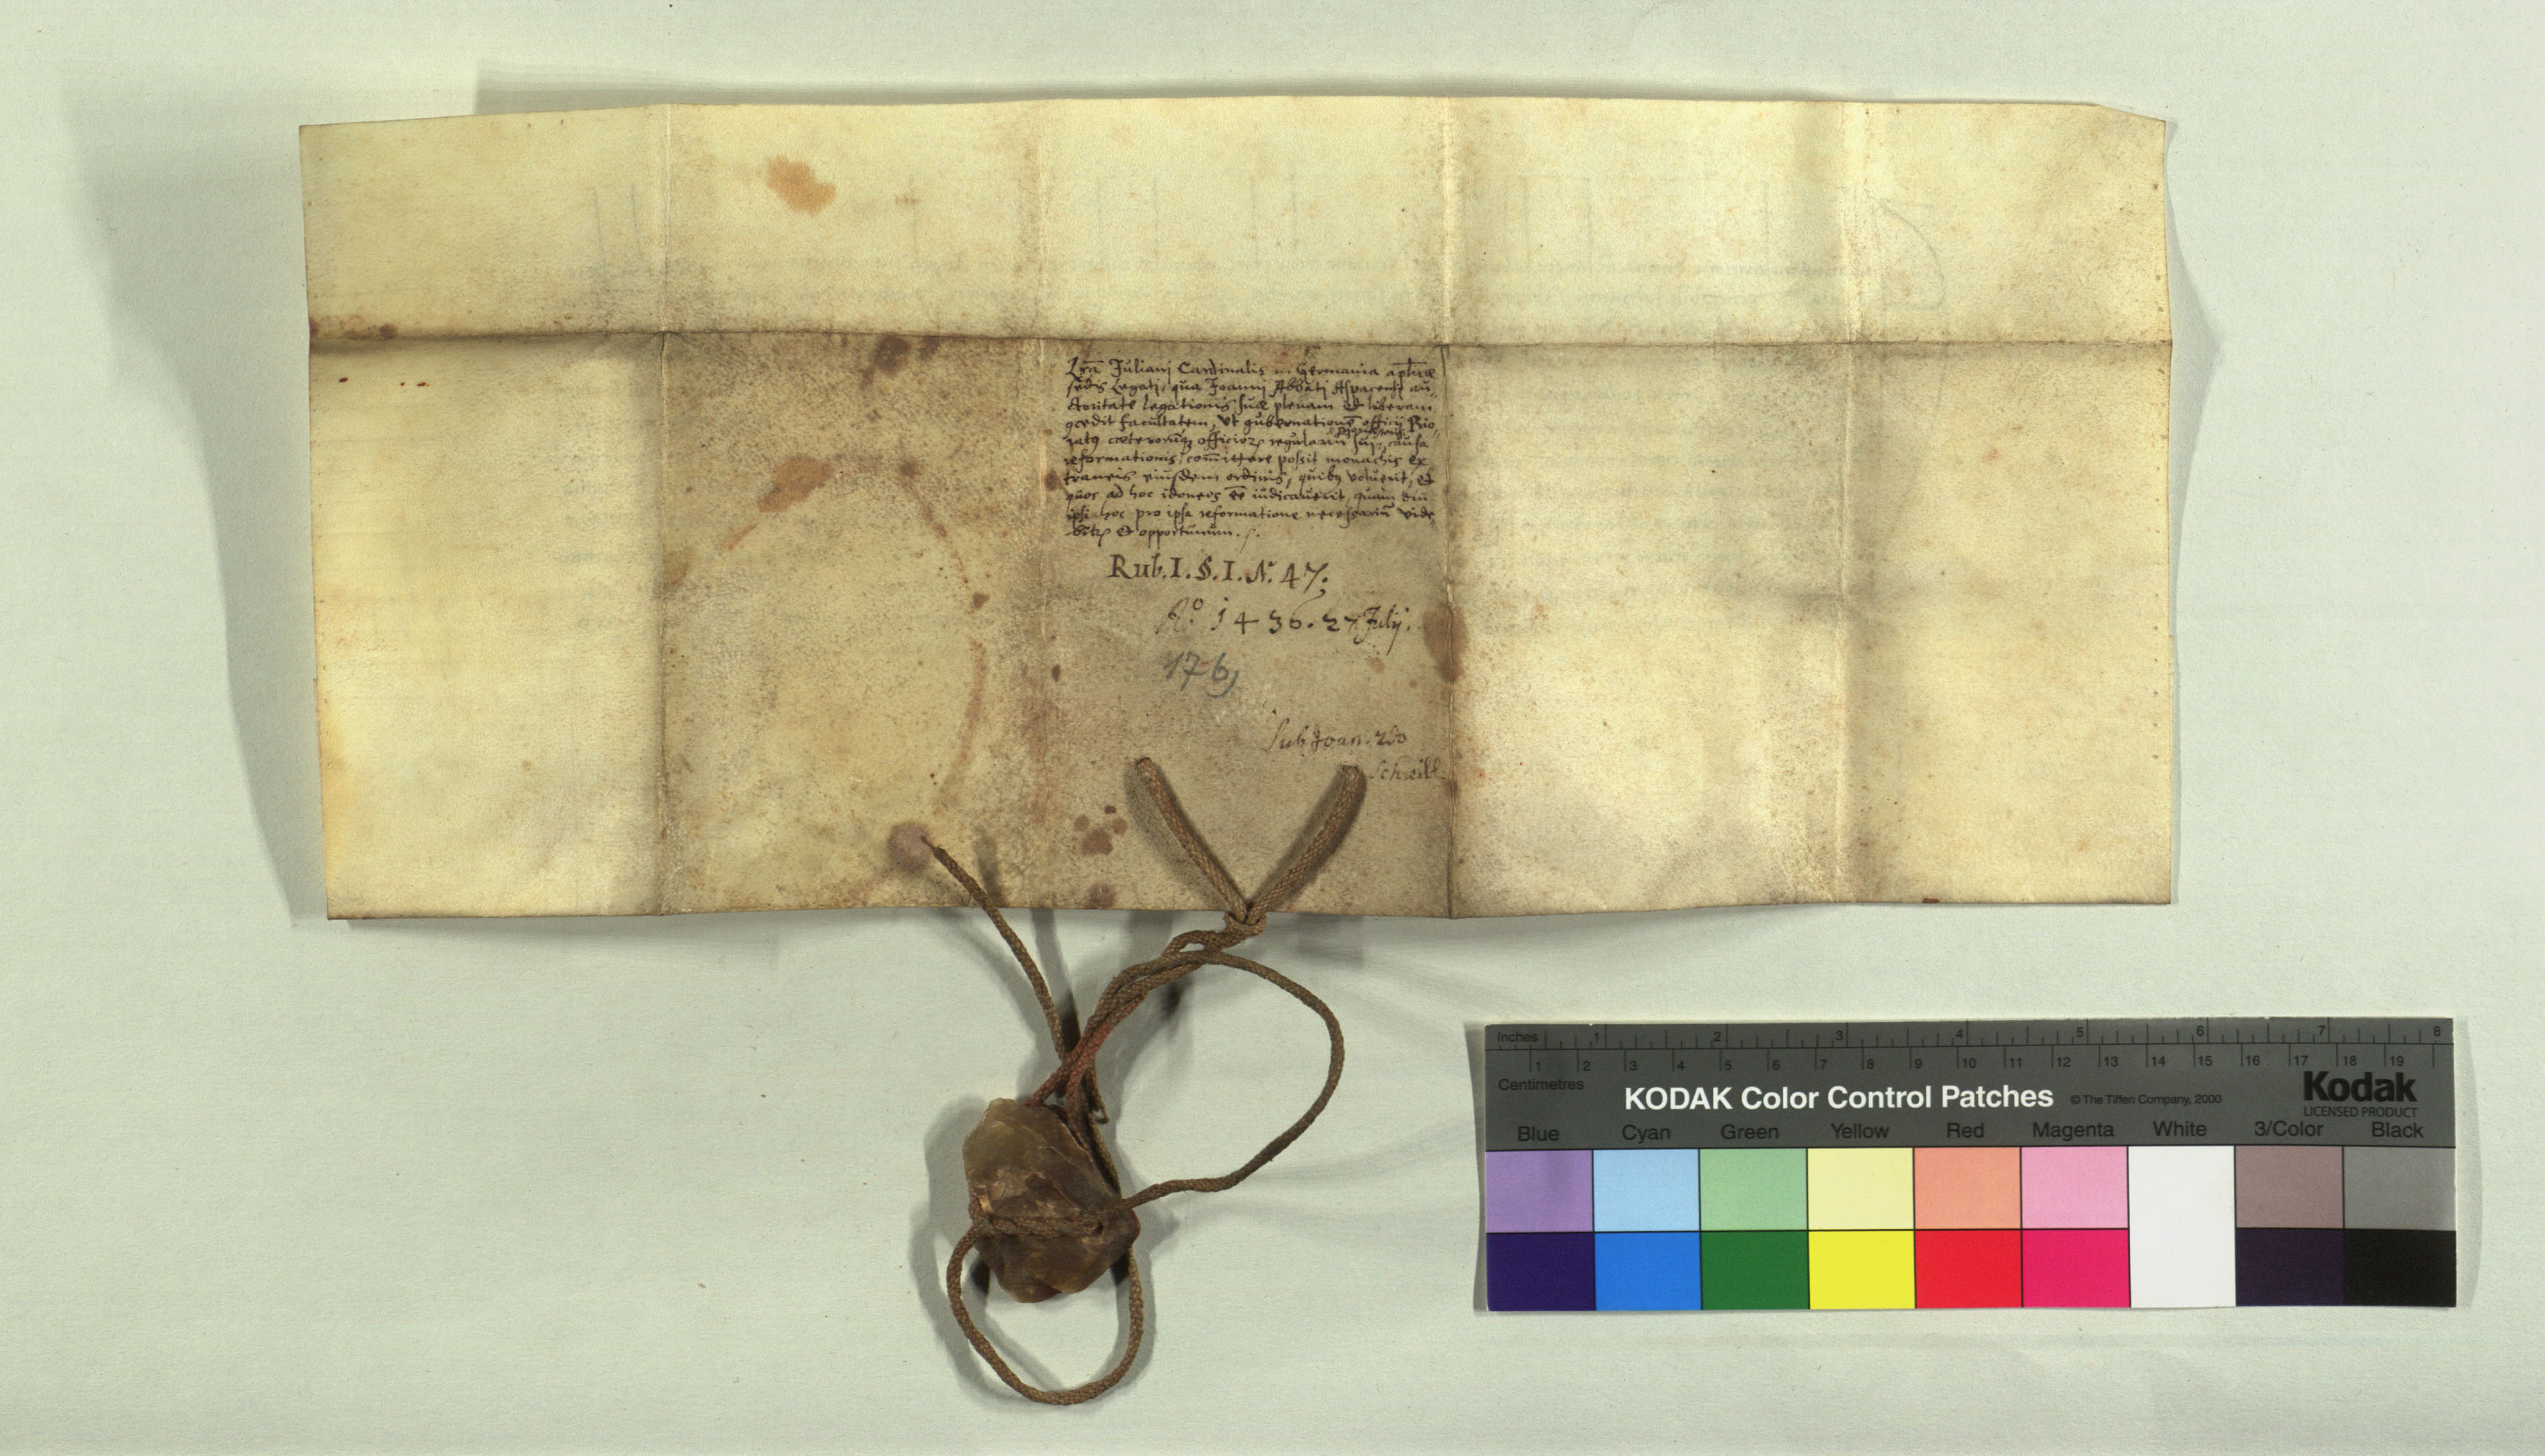 Lrã Juliani Cardinalis in Germania aplicæ
sedis Legati, qua Joanni Abbati Aspacensi au-
ctoritate legationis suæ plenam et liberam
9cedit facultatem, vt gubernationē officij Prio-
ratq cæterorūq officior regulariū sui,
monasterij
causa
reformationis, com̄ittere possit monachis ex
traneis eiusdem ordinis, quibq voluerit, et
quos ad hoc idoneos ēē iudicauerit, quam diu
ipsi hoc pro ipsa reformatione necessariū vide
bitr et opportunum.
Rub. I. §. I. N.º 47.
Aº. 1436. 27 Julij.
176
Sub Joan. 2do
Scheill
Inches 1 2 3 4 5 6 7 8
1 2 3 4 5 6 7 8 9 10 11 12 13 14 15 16 17 18 19
Centimetres
KODAK Color Control Patches © The Tiffen Company, 2000
Kodak
LICENSED PRODUCT
Blue Cyan Green Yellow Red Magenta White 3/Color Black